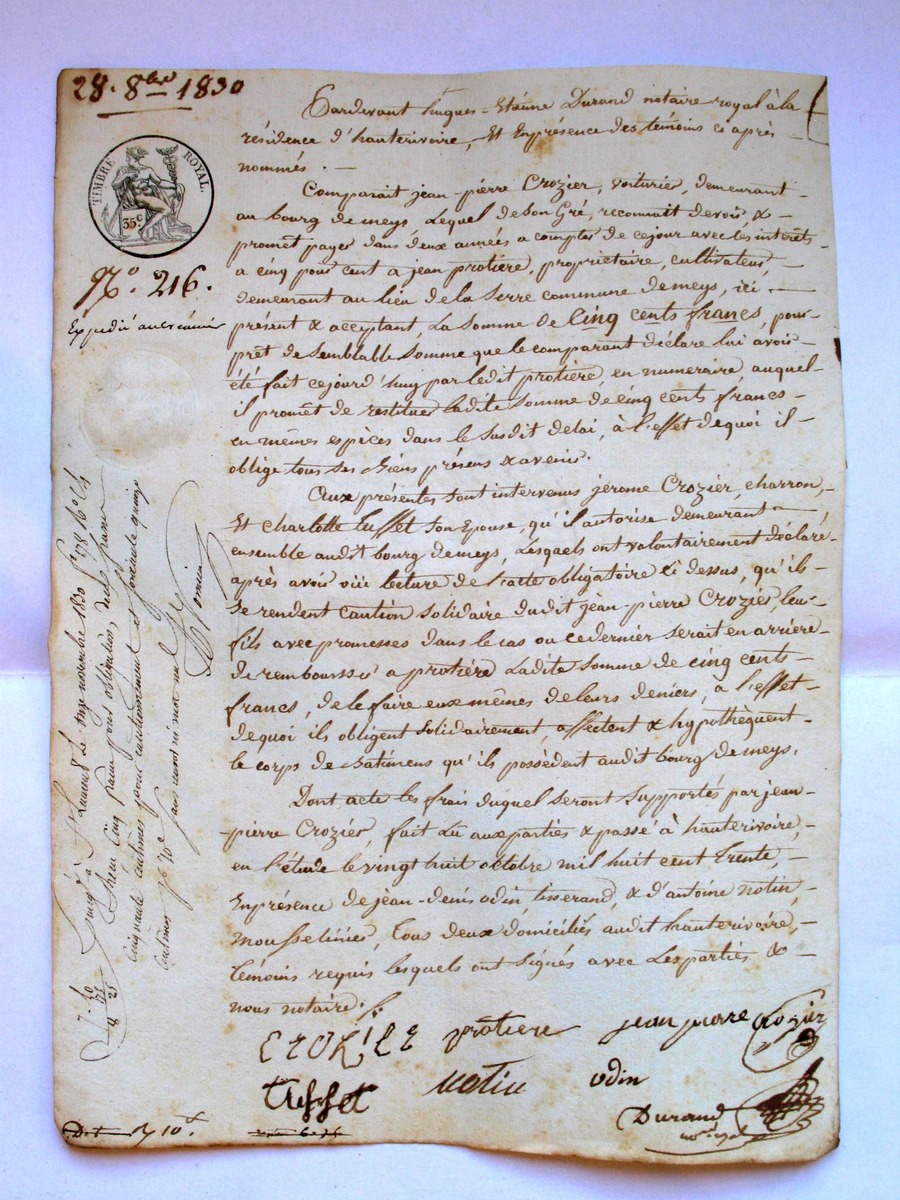 28. 8bre 1830
TIMBRE ROYAL.
35c
No. 216.
Expédié au créancier
Pardevant hugues-Etienne Durand notaire royal à la
résidence d'hauterivoire, Et Enprésence des témoins ci après
nommés. —
Comparait jean-pierre Crozier, voiturié, demeurant
au bourg de meys, Lequel de son Gré, reconnait devoir &
promêt payer dans deux années a compter de cejour avec les intérêts
a cinq pour cent a jean protière, propriétaire, cultivateur,
demeurant au lieu de la Serre commune de meys, ici
présent & acceptant, La somme de Cinq cents francs, pour
prêt de Semblable Somme que le comparant déclare lui avoir
été fait cejourd'huy par ledit protière, en numeraire, auquel
il promêt de restituer ladite Somme de cinq cents francs
en mêmes espèces dans le Susdit delai, à l'effet de quoi il
oblige tous ses Biens présens & avenir.
Aux présentes sont intervenus jérome Crozier, charron,
Et charlotte Tuffet Son Epouse, qu'il autorise demeurant
ensemble audit bourg de meys, Lesquels ont volontairement déclaré
après avoir ouï lecture de l'acte obligatoire ci dessus, qu'ils
se rendent Caution Solidaire dudit jean-pierre Crozier, leur
fils avec promesses dans le cas ou ce dernier serait en arrière
de rembourser a protière Ladite Somme de cinq cents
francs, de le faire eux mêmes de leurs deniers, a l'effet
de quoi ils obligent Solidairement, affectent & hypothèquent
le corps de Batimens qu'ils possèdent audit bourg de meys.
Dont acte les frais duquel seront Supportés par jean-
pierre Crozier, fait Lu aux parties & passé à hauterivoire,
en l'étude le vingt huit octobre mil huit cent Trente,
Enprésence de jean-denis odin, tisserand, & d'antoine notin
mousselinier, Tous deux domiciliés audit hauterivoire,
Témoins requis lesquels ont signés avec Les parties &
nous notaire.
CROZIER protiere jean pierre Crozier
tuffet notin odin
Durand
not. royal
Enregé à St Laurent le onze novembre 1830 fo 178 Ro C 4
Reçu cinq francs pour obligation, deux francs
cinquante centimes pour cautionnement et soixante quinze
centimes pr 10e sans renvoi ni mot nul
D. t. 7 10c